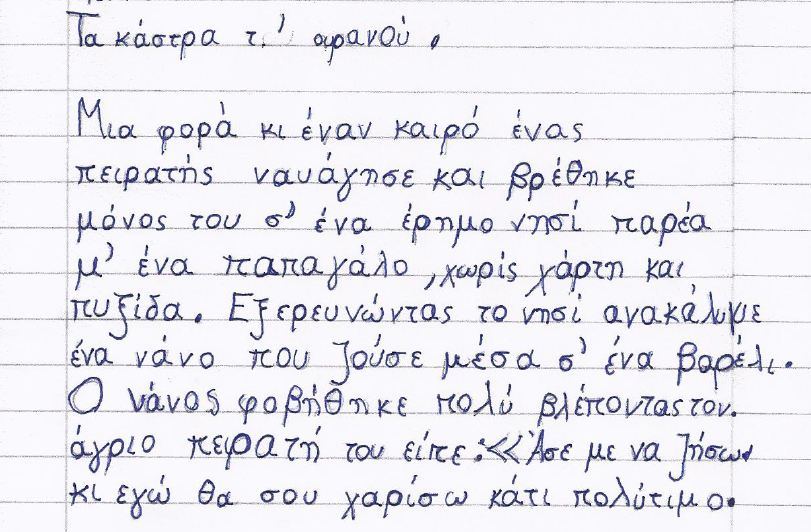 Τα κάστρα τ.' ουρανού.
Μια φορά κι έναν καιρό ένας
πειρατής ναυάγησε και βρέθηκε
μόνος του σ' ένα έρημο νησί παρέα
μ' ένα παπαγάλο, χωρίς χάρτη και
πυξίδα. Εξερευνώντας το νησί ανακάλυψε
ένα νάνο που ζούσε μέσα σ' ένα βαρέλι.
Ο νάνος φοβήθηκε πολύ βλέποντας τον.
άγριο πειρατή του είπε:<<Άσε με να ζήσω.
κι εγώ θα σου χαρίσω κάτι πολύτιμο.